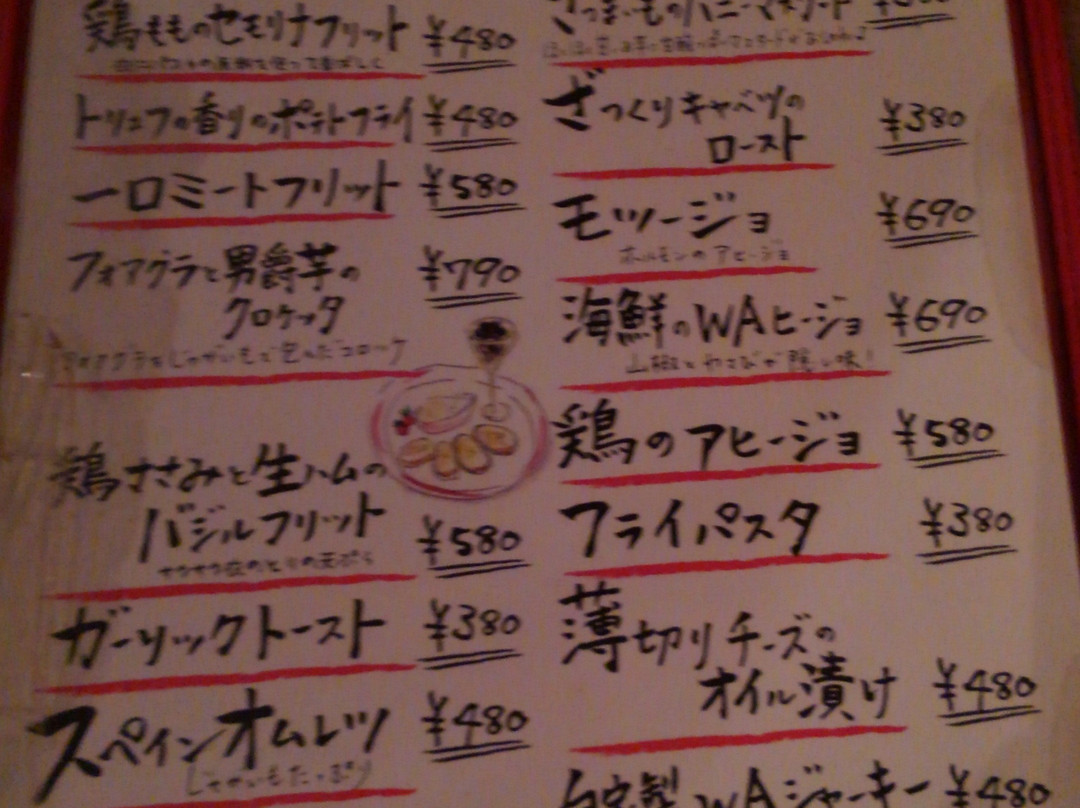 鶏もものセモリナフリット ¥480
トリュフの香りのポテトフライ ¥480
一口ミートフリット ¥580
フォアグラと男爵芋の
クロケッタ ¥790
フォアグラをじゃがいもで包んだコロッケ
鶏ささみと生ハムの
バジルフリット ¥580
サクサク衣のとりの天ぷら
ガーリックトースト ¥380
スペインオムレツ ¥480
じゃがいもたっぷり
さつまいものハニーマスタード
ざっくりキャベツの
ロースト ¥380
モツージョ ¥690
ホルモンのアヒージョ
海鮮のWAヒージョ ¥690
山椒とわさびが隠し味!
鶏のアヒージョ ¥580
フライパスタ ¥380
薄切りチーズの
オイル漬け ¥480
自家製WAジャーキー ¥480